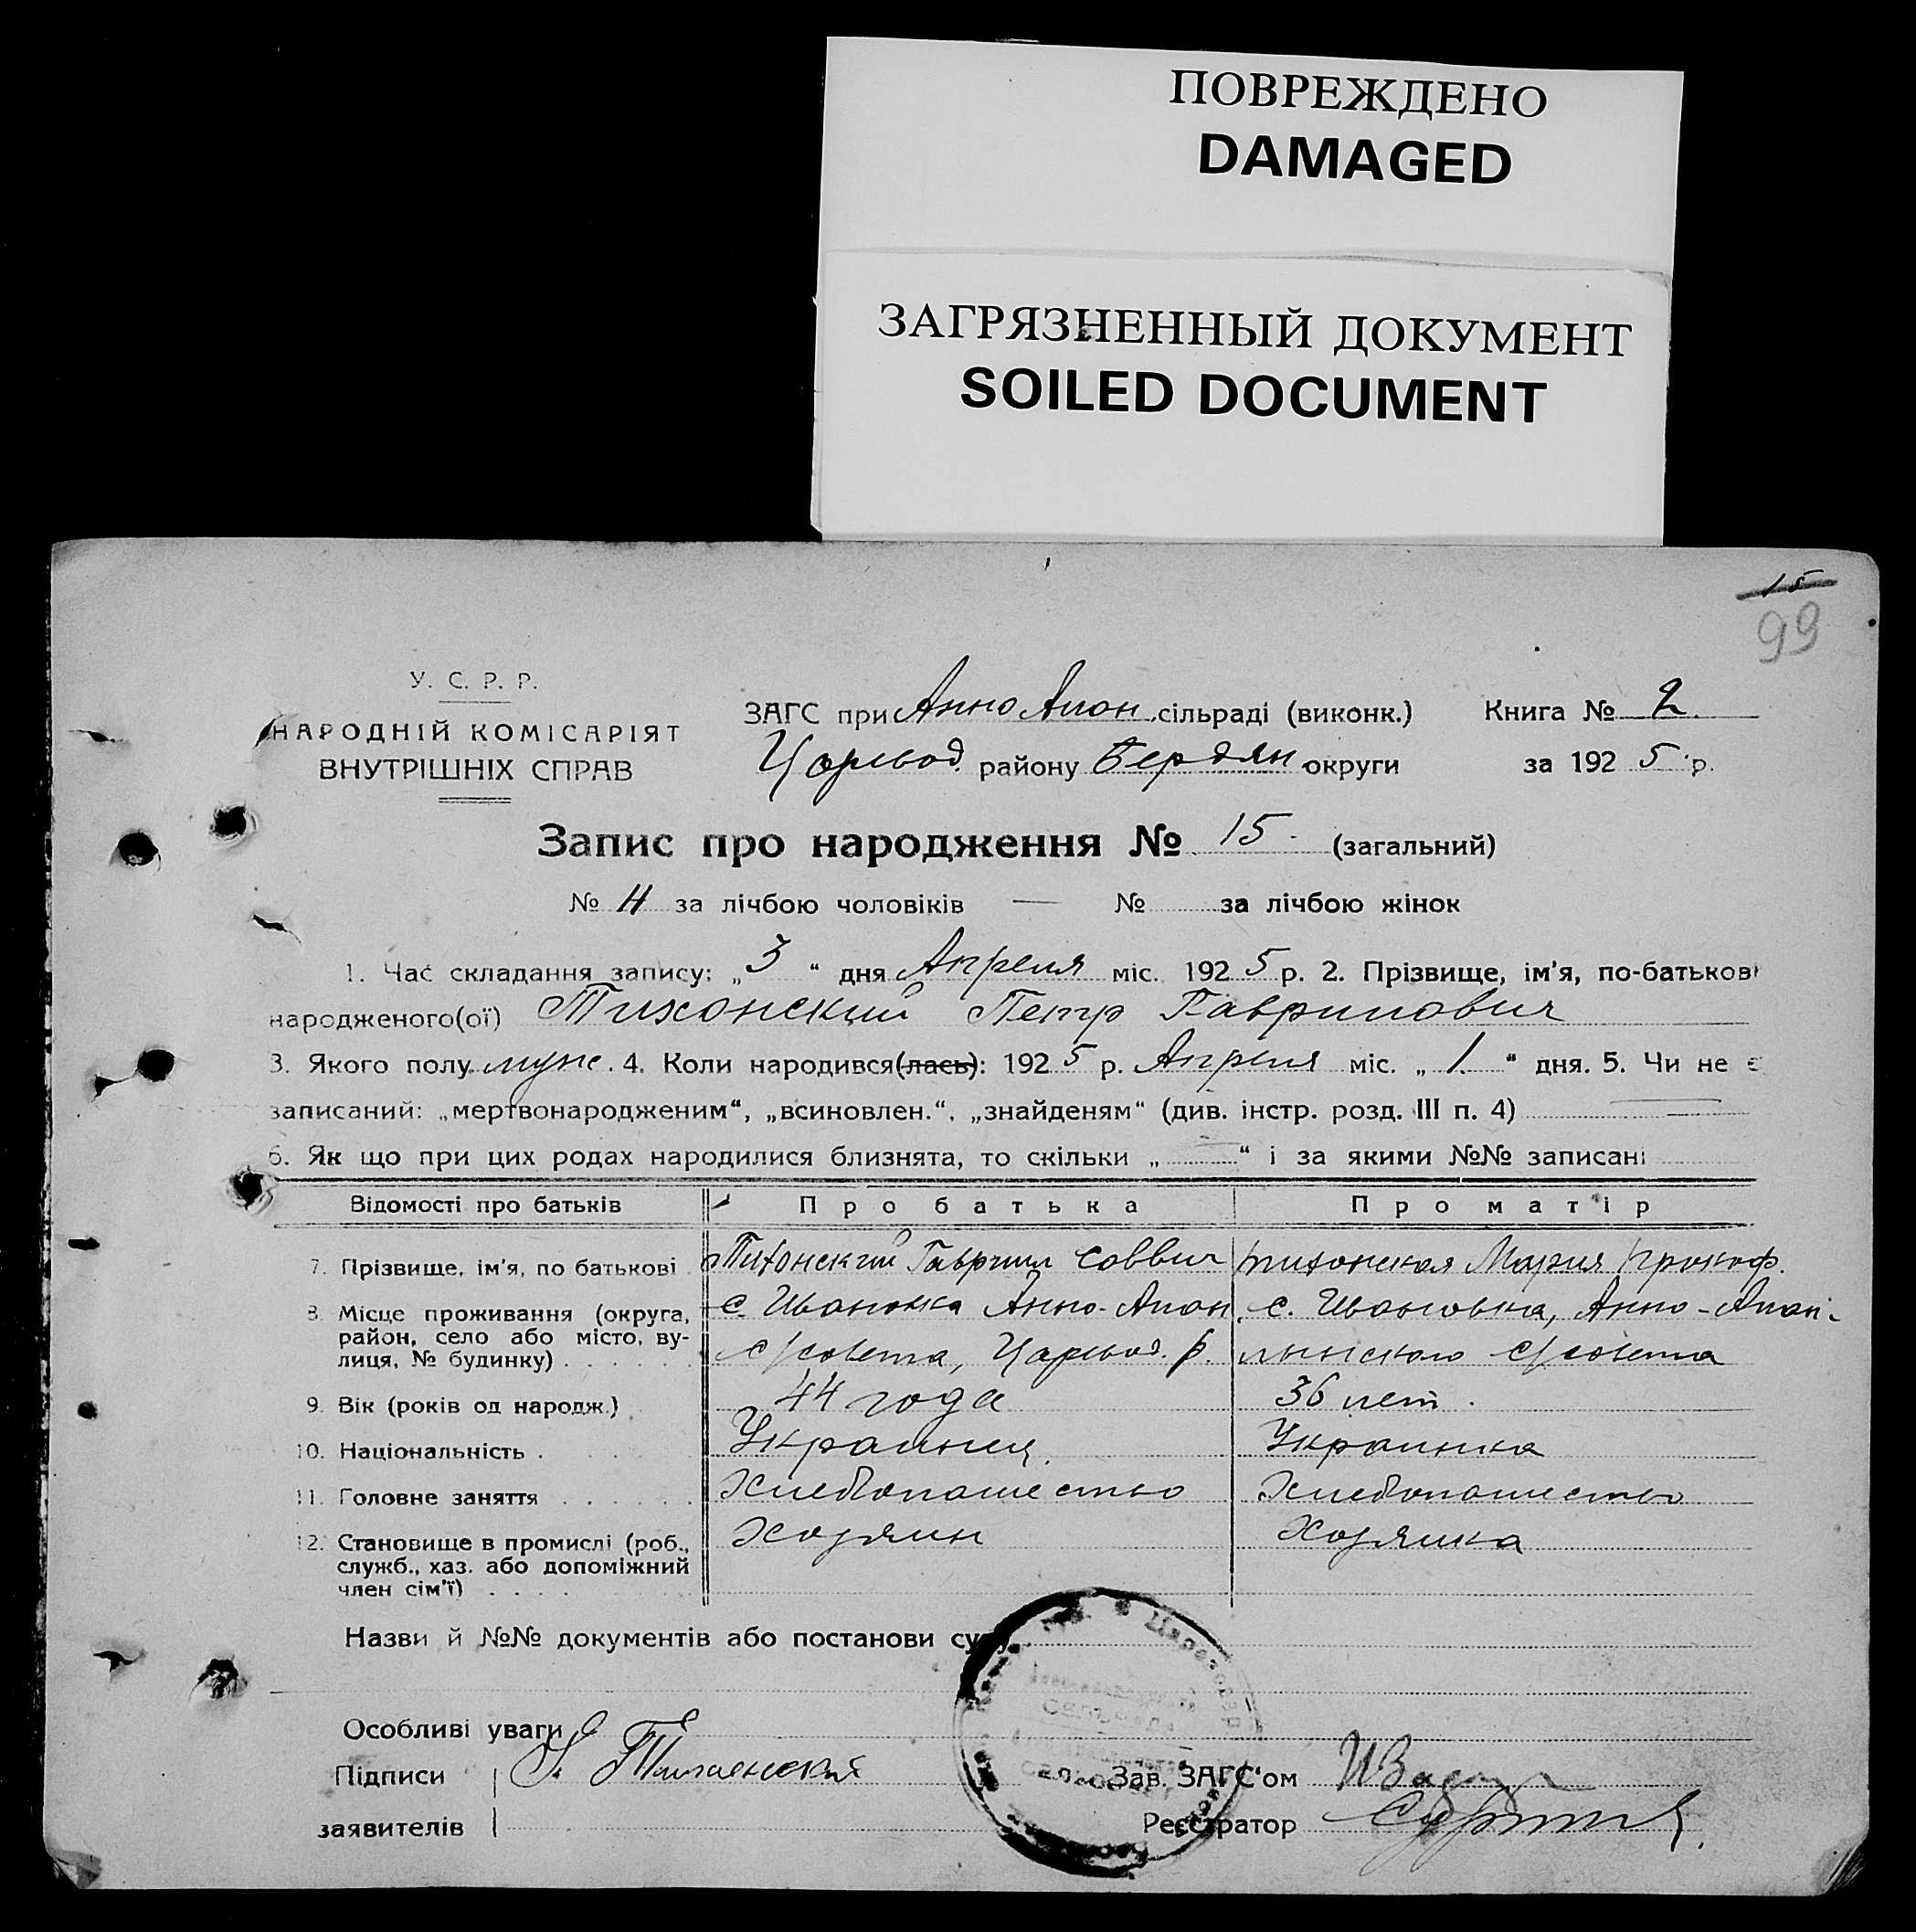 ПОВРЕЖДЕНО
DAMAGED
ЗАГРЯЗНЕННЫЙ ДОКУМЕНТ
SOILED DOCUMENT
15
99
У. С. Р. Р.
НАРОДНІЙ КОМІСАРІЯТ
ВНУТРІШНІХ СПРАВ
ЗАГС при Анно Апол. сільраді (виконк.) Книга № 2
Царевод. району Бердян. округи за 1925 р.
Запис про народження № 15 (загальний)
№ 4 за лічбою чоловіків — № за лічбою жінок
1. Час складання запису: „3“ дня Апреля міс. 1925 р. 2. Прізвище, ім'я, по-батькові
народженого(ої) Тихонский Петр Гаврилович
3. Якого полу муж. 4. Коли народився(лась): 1925 р. Апреля міс. „1.“ дня. 5. Чи не є
записаний: „мертвонародженим“, „всиновлен.“, „знайденям“ (див. інстр. розд. III п. 4)
6. Як що при цих родах народилися близнята, то скільки „ — “ і за якими №№ записані
Відомості про батьків Про батька Про матір
7. Прізвище, ім'я, по батькові Тихонский Гаврил Саввич Тихонская Мария Прокоф.
8. Місце проживання (округа, с. Ивановка Анно-Апол. с. Ивановка, Анно-Апол-
район, село або місто, ву- с/совета, Царевод. р. линского с/совета
лиця, № будинку)
9. Вік (років од народж.) 44 года 36 лет.
10. Національність Украинец. Украинка
11. Головне заняття Хлебопашество Хлебопашество
12. Становище в промислі (роб., Хозяин Хозяйка
служб., хаз. або допоміжний
член сім'ї)
Назви й №№ документів або постанови суду
Особливі уваги
Підписи Тихонская Зав. ЗАГС'ом
заявителів Реєстратор